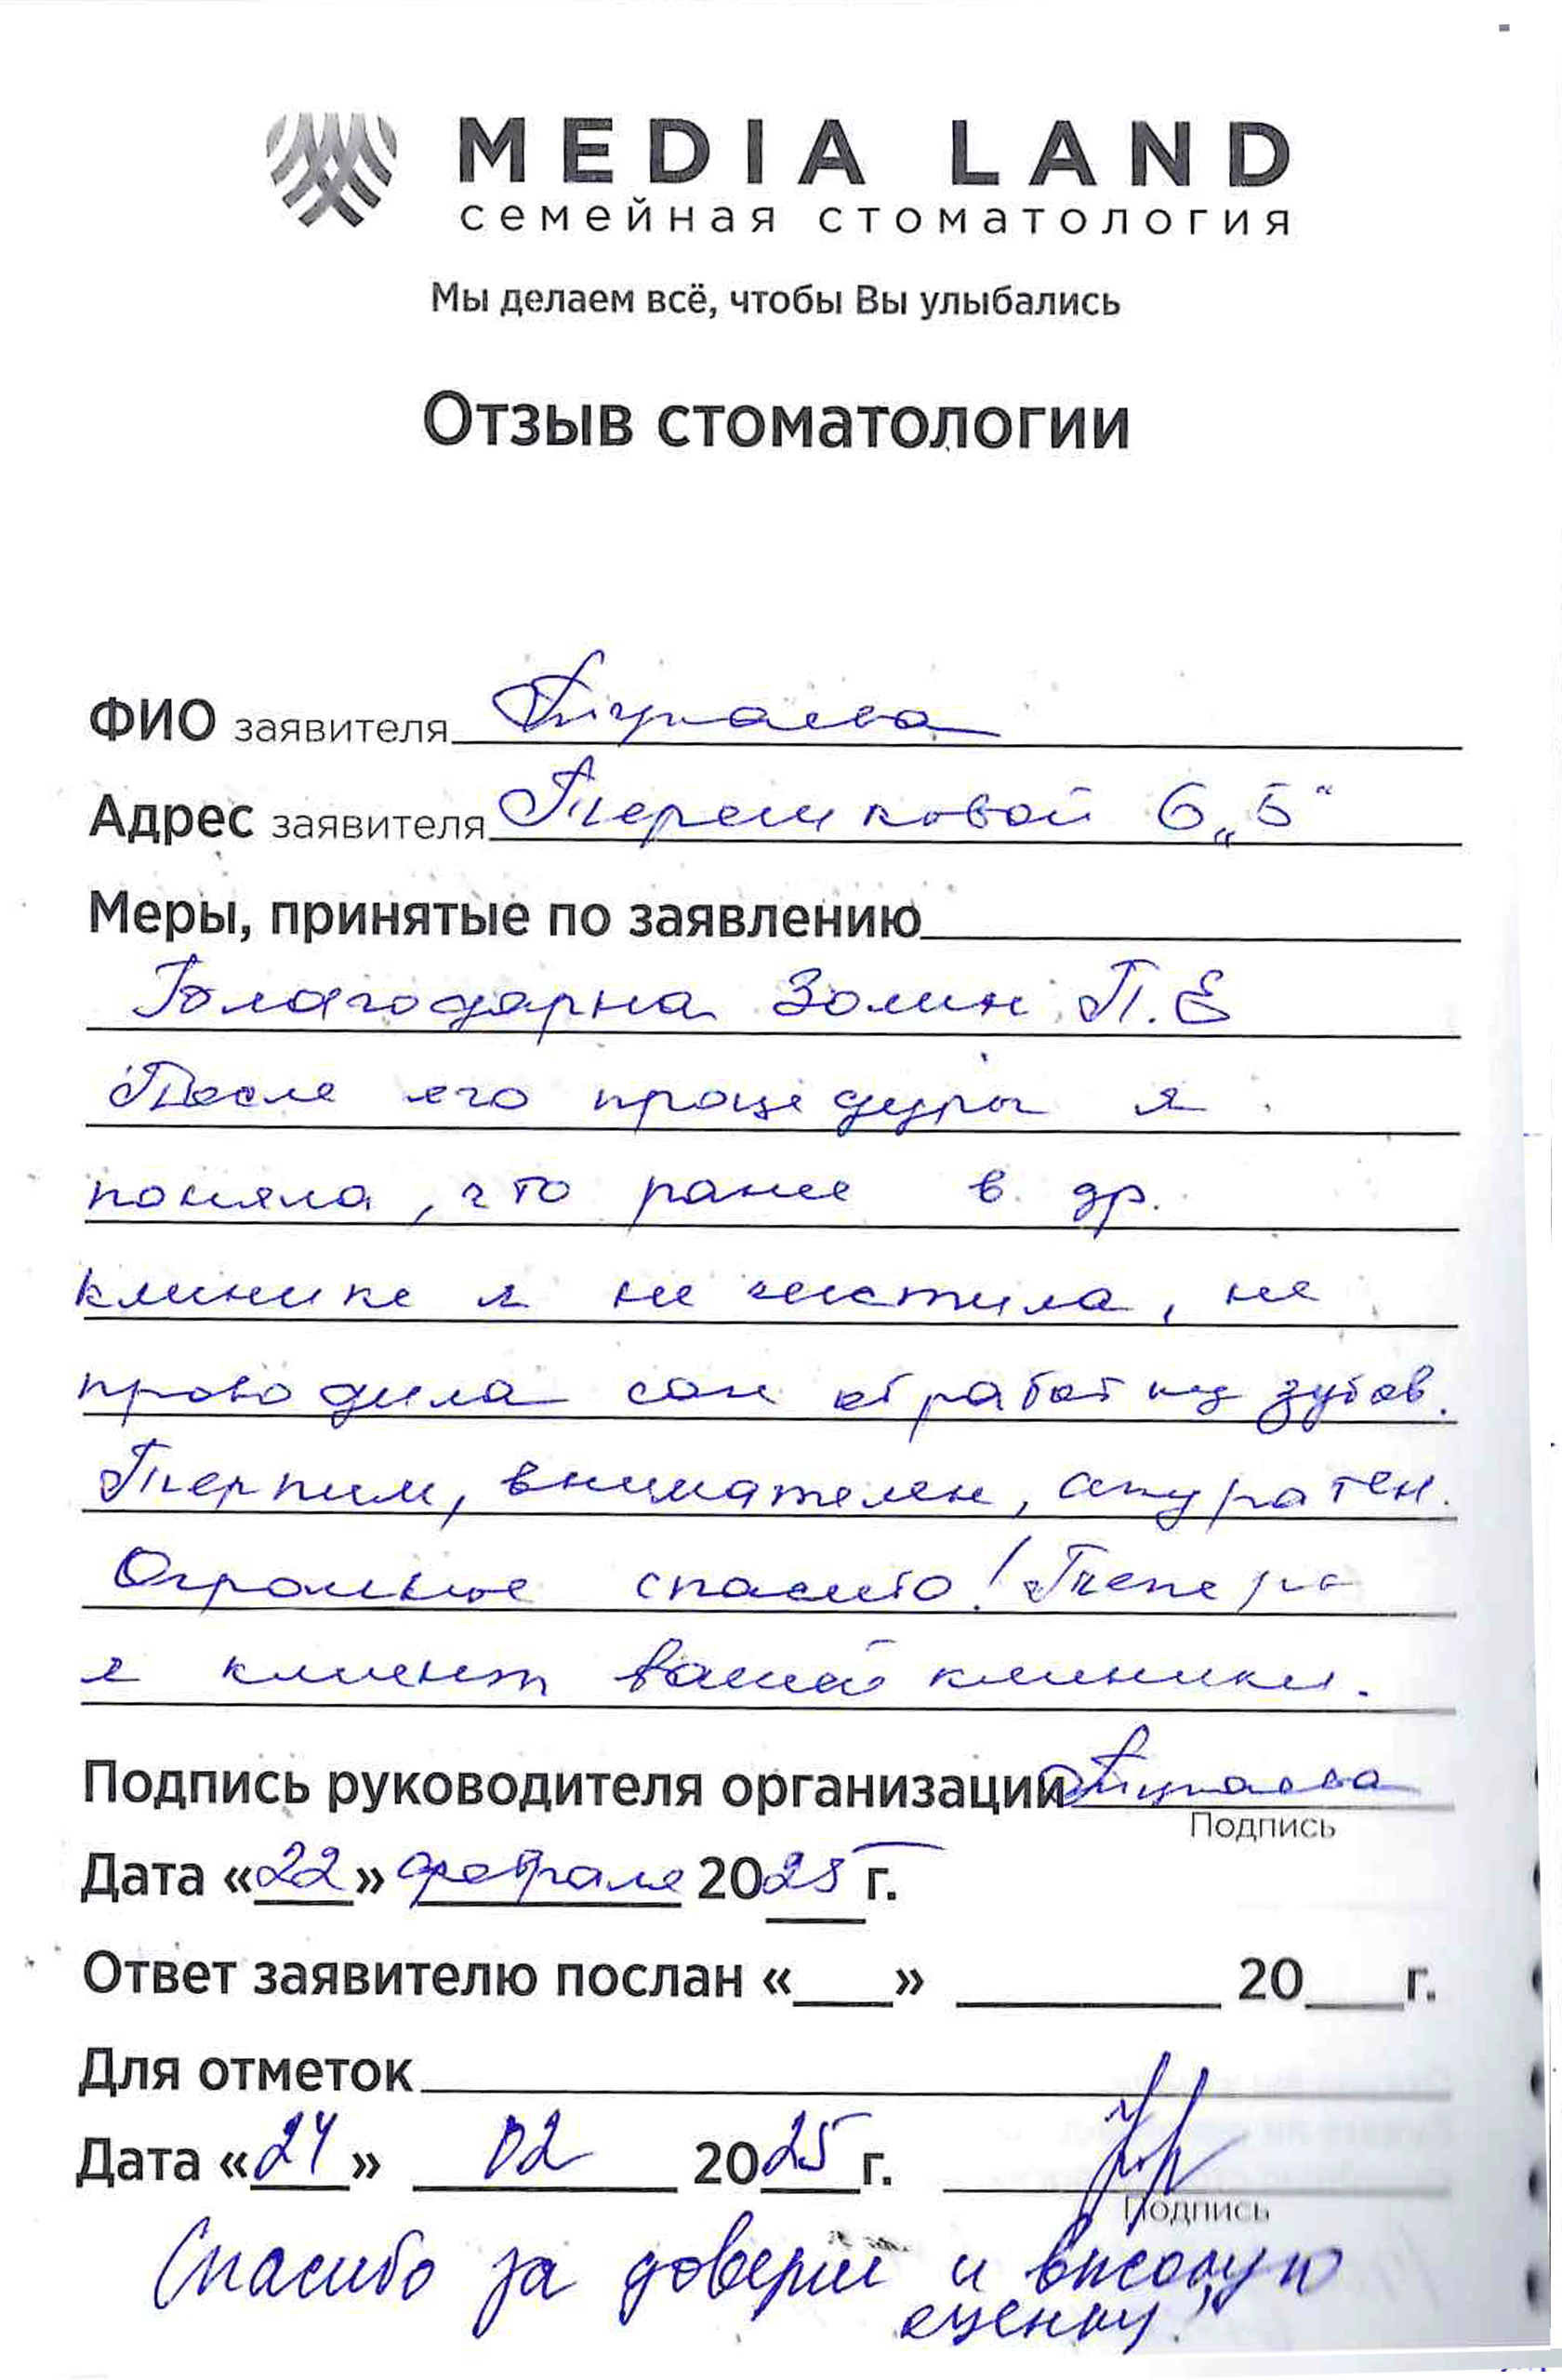 MEDIA LAND
семейная стоматология
Мы делаем всё, чтобы Вы улыбались
Отзыв стоматологии
ФИО заявителя
Адрес заявителя Терешковой 6 „Б“
Меры, принятые по заявлению
Благодарна Золин П.Е
После его процедуры я
поняла, что ранее в др.
клинике я не чистила, не
проводила сан обработку зубов.
Терпим, внимателен, акуратен.
Огромное спасибо! Теперь
я клиент вашей клиники.
Подпись руководителя организации
Подпись
Дата «22» февраля 2025 г.
Ответ заявителю послан «___» ________ 20___г.
Для отметок
Дата «24» 02 2025 г.
Подпись
Спасибо за доверие и высокую
оценку!